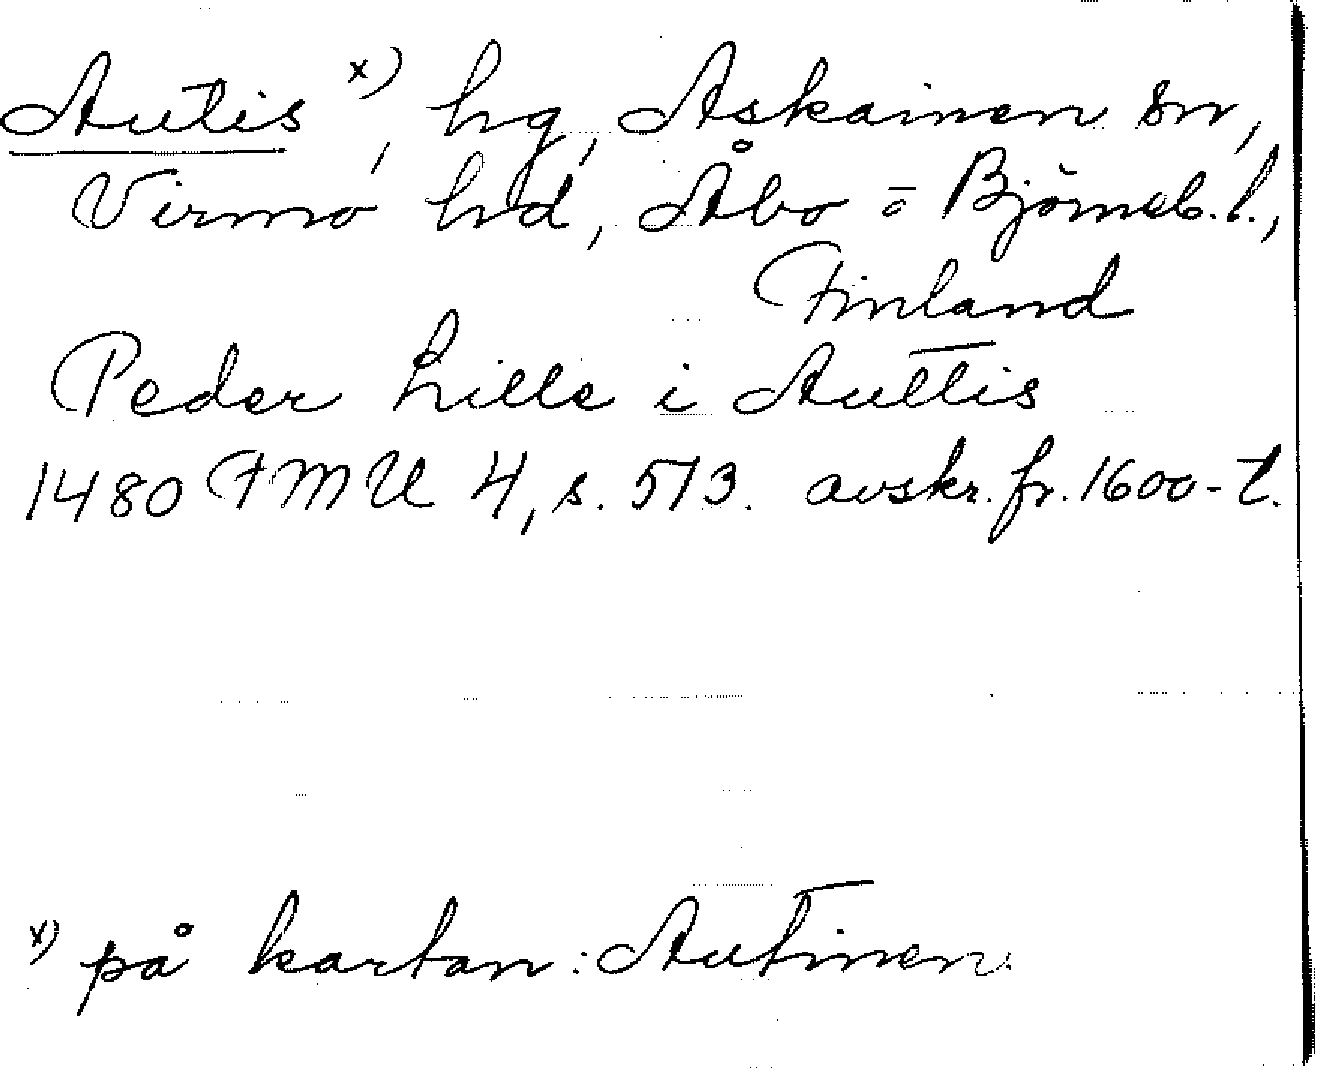 Autis x), hg, Askainen sn,
Virmo hd, Åbo o Björneb. l.,
Finland
Peder Lille i Auttis
1480 FMU 4, s. 513. avskr. fr. 1600-t.
x) på kartan: Autinen.